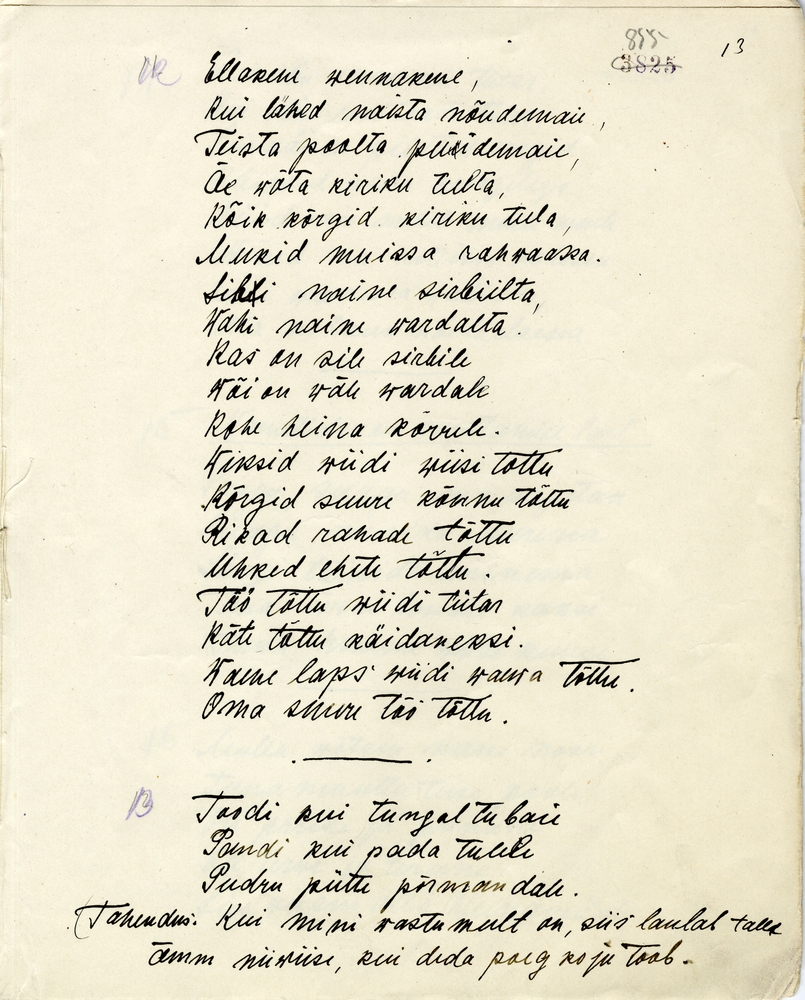 855
3825
13
12 Ellakene wennakene,
Kui lähed naista nõudemaie,
Teista poolta püüdemaie,
Äe wõta kiriku tulta,
Kõik kõrgid kiriku tula,
Mukid muissa rahwaassa.
naine sirbiilta,
Wahi naine wardalta.
Kas on sile sirbile
Wõi on wäle wardale
Kohe heina kõrrele.
Wiksid wiidi wiisi tõttu
Kõrgid suure kõnnu tõttu
Rikad rahade tõttu
Uhked ehete tõttu.
Töö tõttu wiidi tütar
Käte tõttu käidaneksi.
Waene laps wiidi waewa tõttu.
Oma suure töö tõttu.
13 Toodi kui tungal tubaie
Pandi kui pada tulele
Pudru pütte põrmandale.
(Tähendus: Kui mini wastumelt on, siis laulab talle
ämm niiwiise, kui deda poeg koju toob.